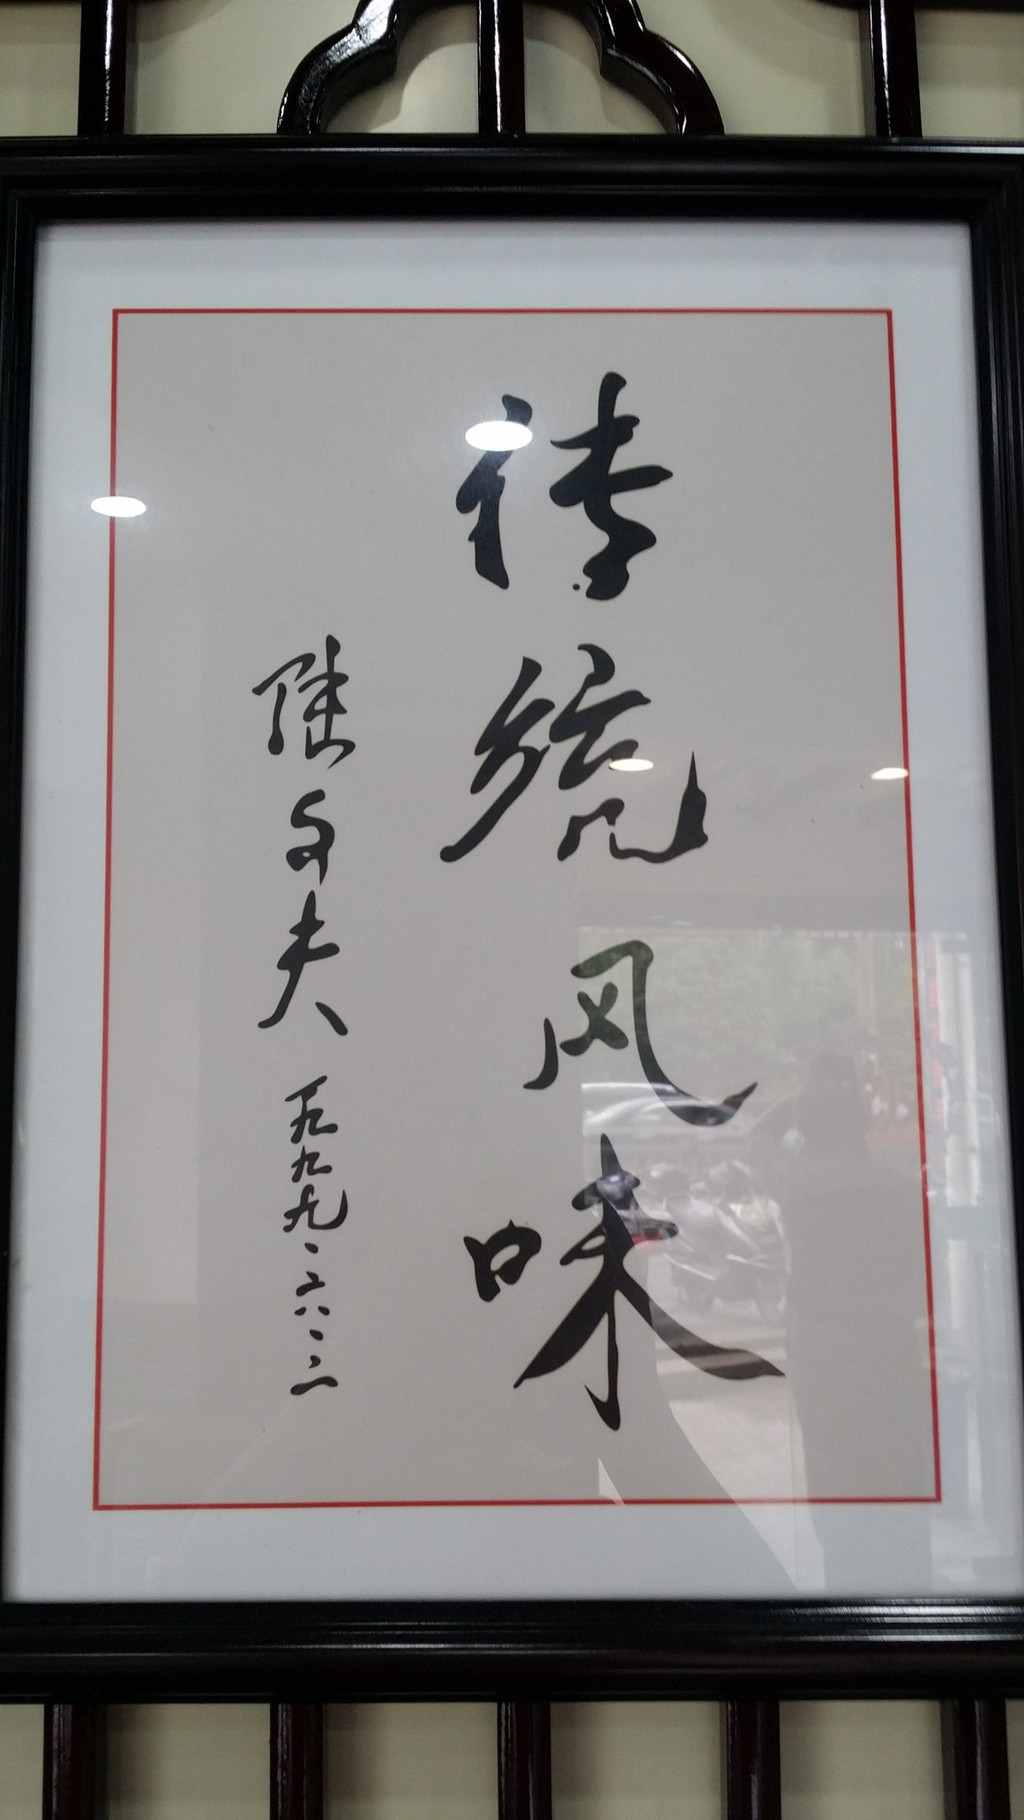 传统风味
陆文夫 一九九九.六.二